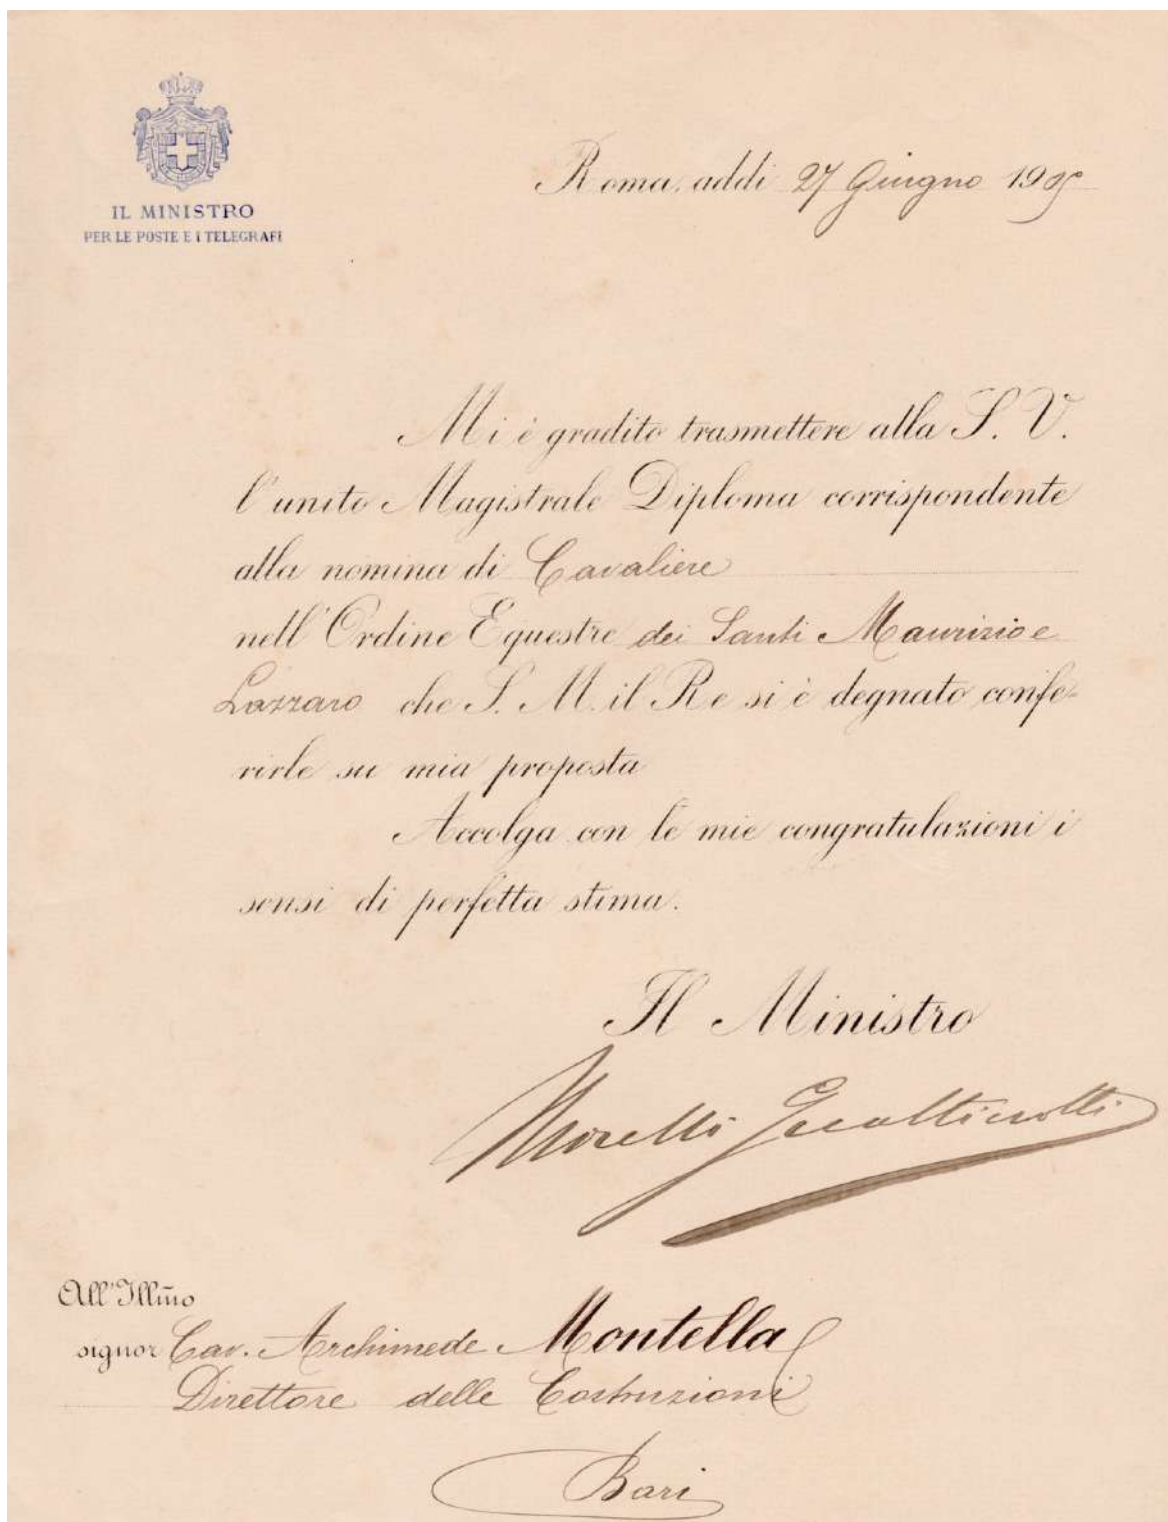 IL MINISTRO
PER LE POSTE E I TELEGRAFI
Roma, addi 27 Giugno 1905
Mi è gradito trasmettere alla S. V.
l'unito Magistrale Diploma corrispondente
alla nomina di Cavaliere
nell'Ordine Equestre dei Santi Maurizio e
Lazzaro che S. M. il Re si è degnato confe-
rirle su mia proposta
Accolga con le mie congratulazioni i
sensi di perfetta stima.
Il Ministro
Morelli Gualtierotti
All'Illmo
signor Cav. Archimede Montella
Direttore delle Costruzioni
Bari